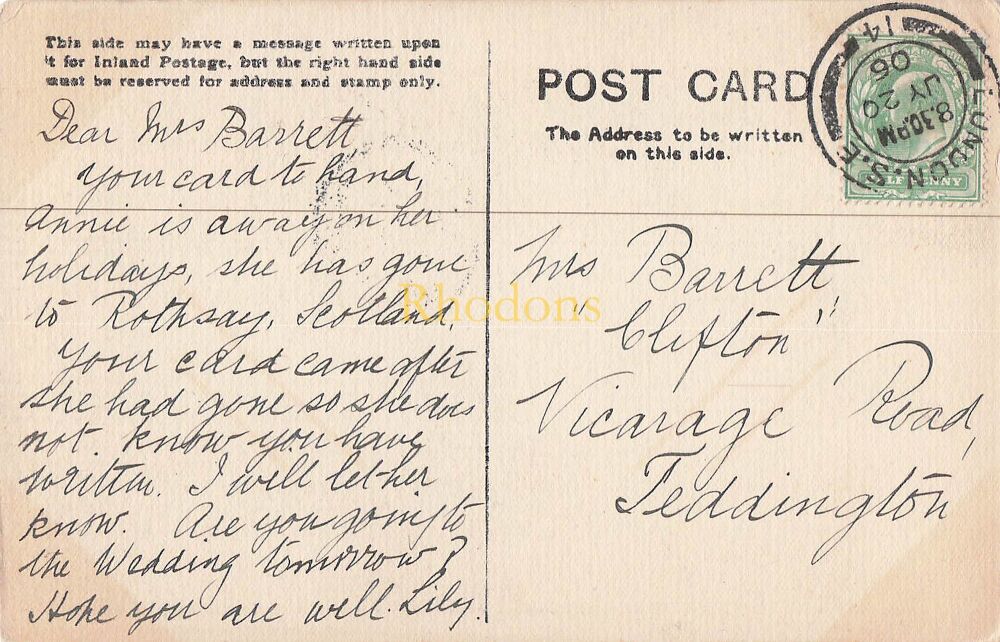 This side may have a message written upon
it for Inland Postage, but the right hand side
must be reserved for address and stamp only.
Dear Mrs Barrett,
Your card to hand,
Annie is away on her
holidays, she has gone
to Rothsay, Scotland.
Your card came after
she had gone so she does
not know you have
written. I will let her
know. Are you going to
the Wedding tomorrow?
Hope you are well. Lily.
POST CARD
The Address to be written
on this side.
LONDON. S.E.
8.30PM
JY 20
06
14
HALFPENNY
Mrs Barrett
"Clifton"
Vicarage Road,
Teddington
Rhodons